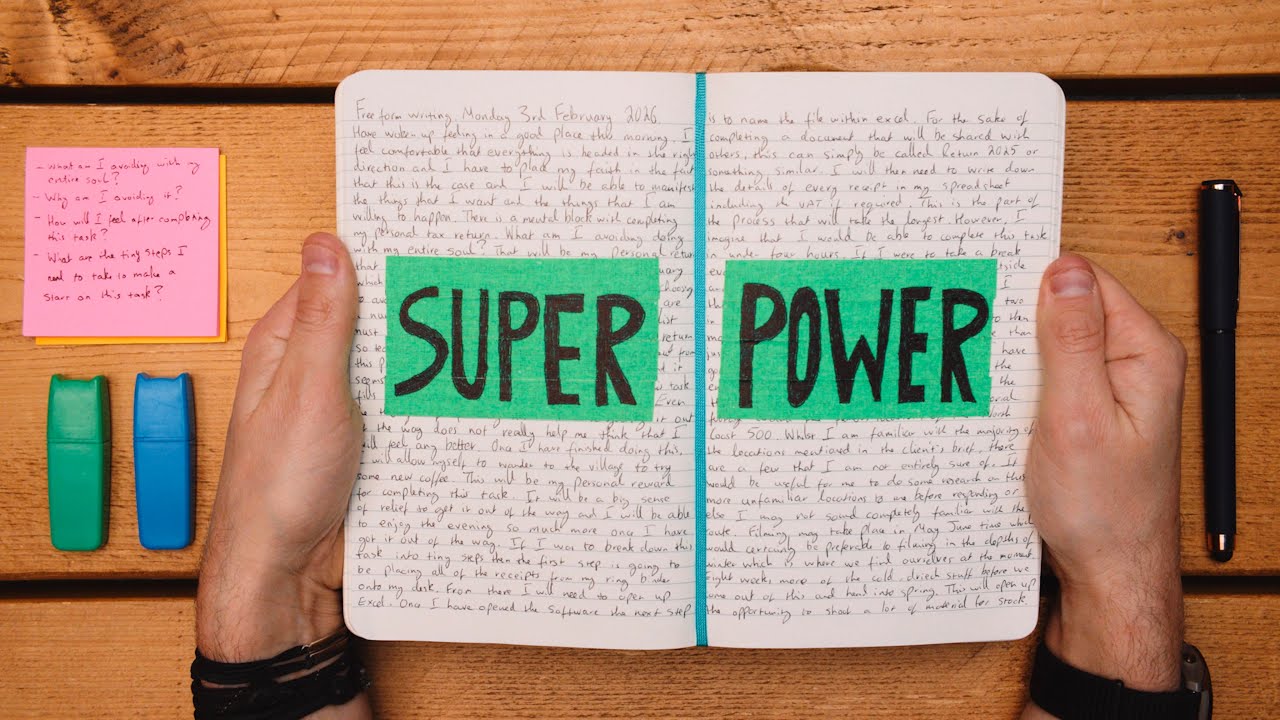 - What am I avoiding with my
entire soul?
- Why am I avoiding it?
- How will I feel after completing
this task?
- What are the tiny steps I
need to take to make a
start on this task?
Free form writing, Monday 3rd February 2026.
Have woken up feeling in a good place this morning. I
feel comfortable that everything is headed in the right
direction and I have to place my faith in the fact
that this is the case and I will be able to manifest
the things that I want and the things that I am
willing to happen. There is a mental block with completing
my personal tax return. What am I avoiding doing
with my entire soul? That will be my personal return
SUPER
the way does not really help me think that I
will feel any better. Once I have finished doing this,
I will allow myself to wander to the village to try
some new coffee. This will be my personal reward
for completing this task. It will be a big sense
of relief to get it out of the way and I will be able
to enjoy the evening so much more once I have
got it out of the way. If I was to break down this
task into tiny steps then the first step is going to
be placing all of the receipts from my ring binder
onto my desk. From there I will need to open up
Excel. Once I have opened the software the next step
is to name the file within excel. For the sake of
completing a document that will be shared with
others, this can simply be called Return 2025 or
something similar. I will then need to write down
the details of every receipt in my spreadsheet
including the VAT if required. This is the part of
the process that will take the longest. However, I
imagine that I would be able to complete this task
in under four hours. If I were to take a break
POWER
Coast 500. Whilst I am familiar with the majority of
the locations mentioned in the client's brief, there
are a few that I am not entirely sure of. It
would be useful for me to do some research on these
more unfamiliar locations before responding or
else I may not sound completely familiar with the
route. Filming may take place in May, June time which
would certainly be preferable to filming in the depths of
winter which is where we find ourselves at the moment.
Eight weeks more of the cold, dried stuff before we
come out of this and head into spring. This will open up
the opportunity to shoot a lot of material for stock